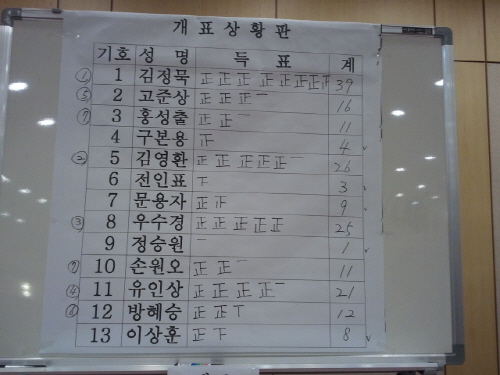 개표상황판
기호 성 명 득 표 계
① 1 김정묵 正 正 正 正 正 正 正 39
⑤ 2 고준상 正 正 正 一 16
⑦ 3 홍성출 正 正 一 11
4 구본용 4 v
② 5 김영환 正 正 正 正 正 一 26
6 전인표 下 3
7 문용자 正 9
③ 8 우수경 正 正 正 正 正 25
9 정승원 一 1 v
⑦ 10 손원오 正 正 一 11
④ 11 유인상 正 正 正 正 一 21
⑥ 12 방혜승 正 正 丅 12
13 이상훈 正 下 8 v